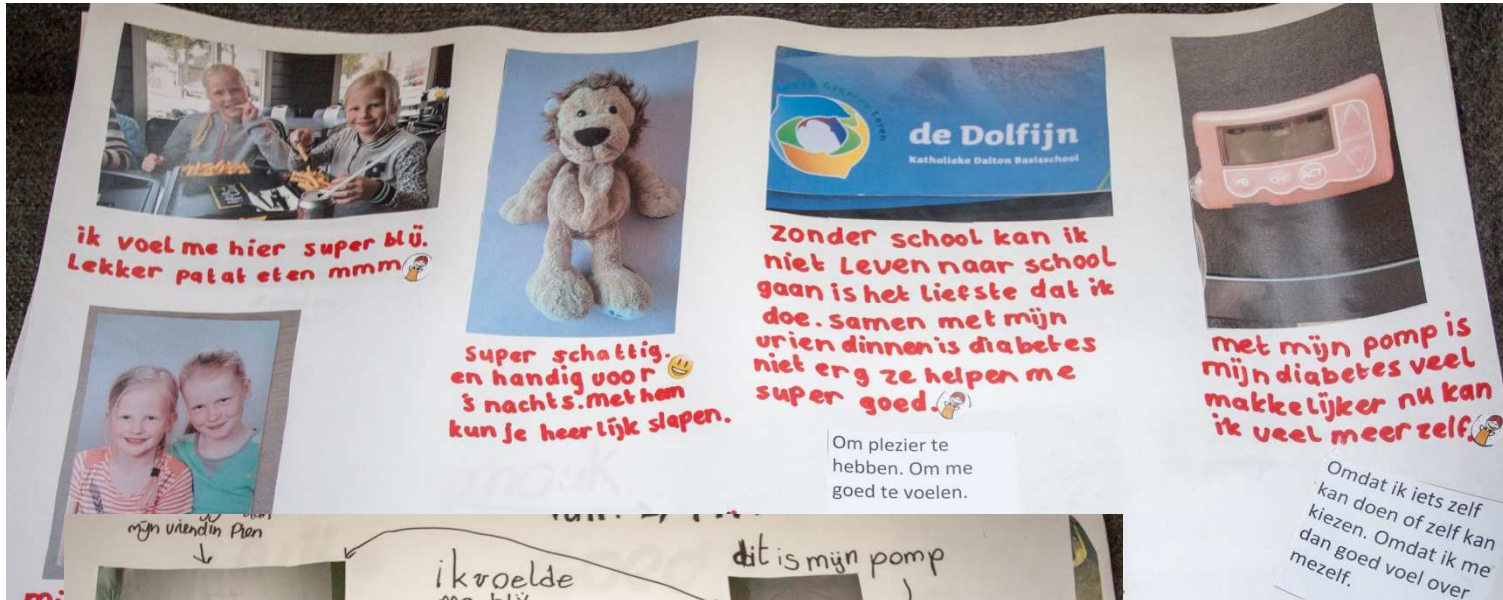 ik voel me hier super blij.
Lekker patat eten mmm
super schattig.
en handig voor
's nachts. met hem
kun je heerlijk slapen.
de Dolfijn
Katholieke Dalton Basisschool
zonder school kan ik
niet Leven naar school
gaan is het liefste dat ik
doe. samen met mijn
vriendinnen is diabetes
niet erg ze helpen me
super goed.
Om plezier te
hebben. Om me
goed te voelen.
ACT
met mijn pomp is
mijn diabetes veel
makkelijker nu kan
ik veel meer zelf.
Omdat ik iets zelf
kan doen of zelf kan
kiezen. Omdat ik me
dan goed voel over
mezelf.
mijn vriendin Pien
ik voelde
me blij
dit is mijn pomp